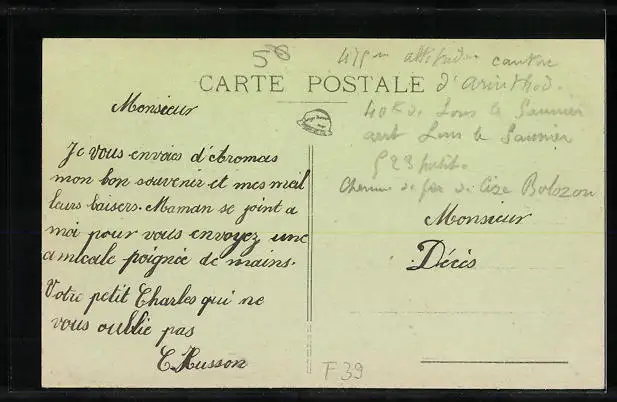 58
475m altitude canton
CARTE POSTALE d'Arinthod.
40K de Lons le Saunier
arrt Lons le Saunier
523 habit.
Chemin de fer de Cize Bolozon
Monsieur
Je vous envoies d'Aromas
mon bon souvenir et mes meil
leurs baisers. Maman se joint a
moi pour vous envoyez une
amicale poignée de mains.
Votre petit Charles qui ne
vous oublie pas
C Husson
Monsieur
Décès
F 39